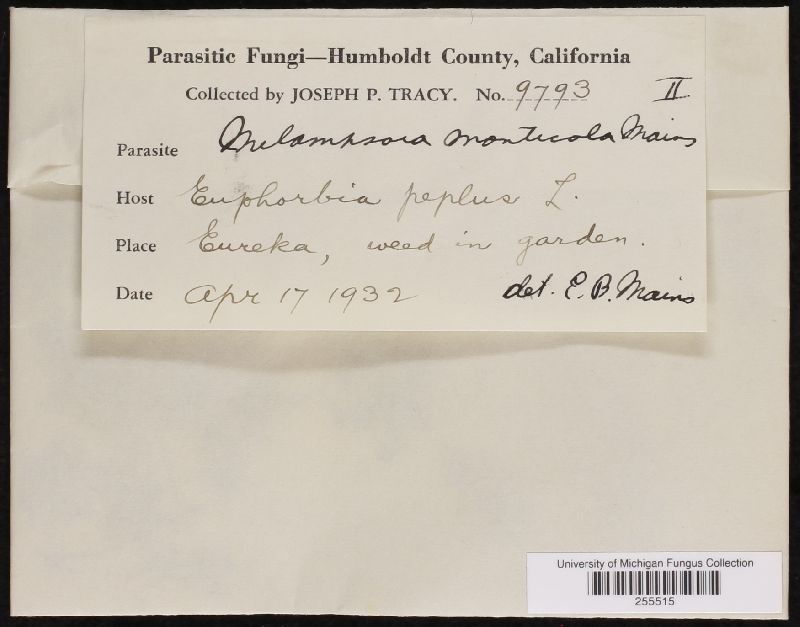 Parasitic Fungi—Humboldt County, California
Collected by JOSEPH P. TRACY. No. 9793 II
Parasite Melampsora monticola Mains
Host Euphorbia peplus L.
Place Eureka, weed in garden.
Date Apr 17 1932 det. E. B. Mains
University of Michigan Fungus Collection
255515